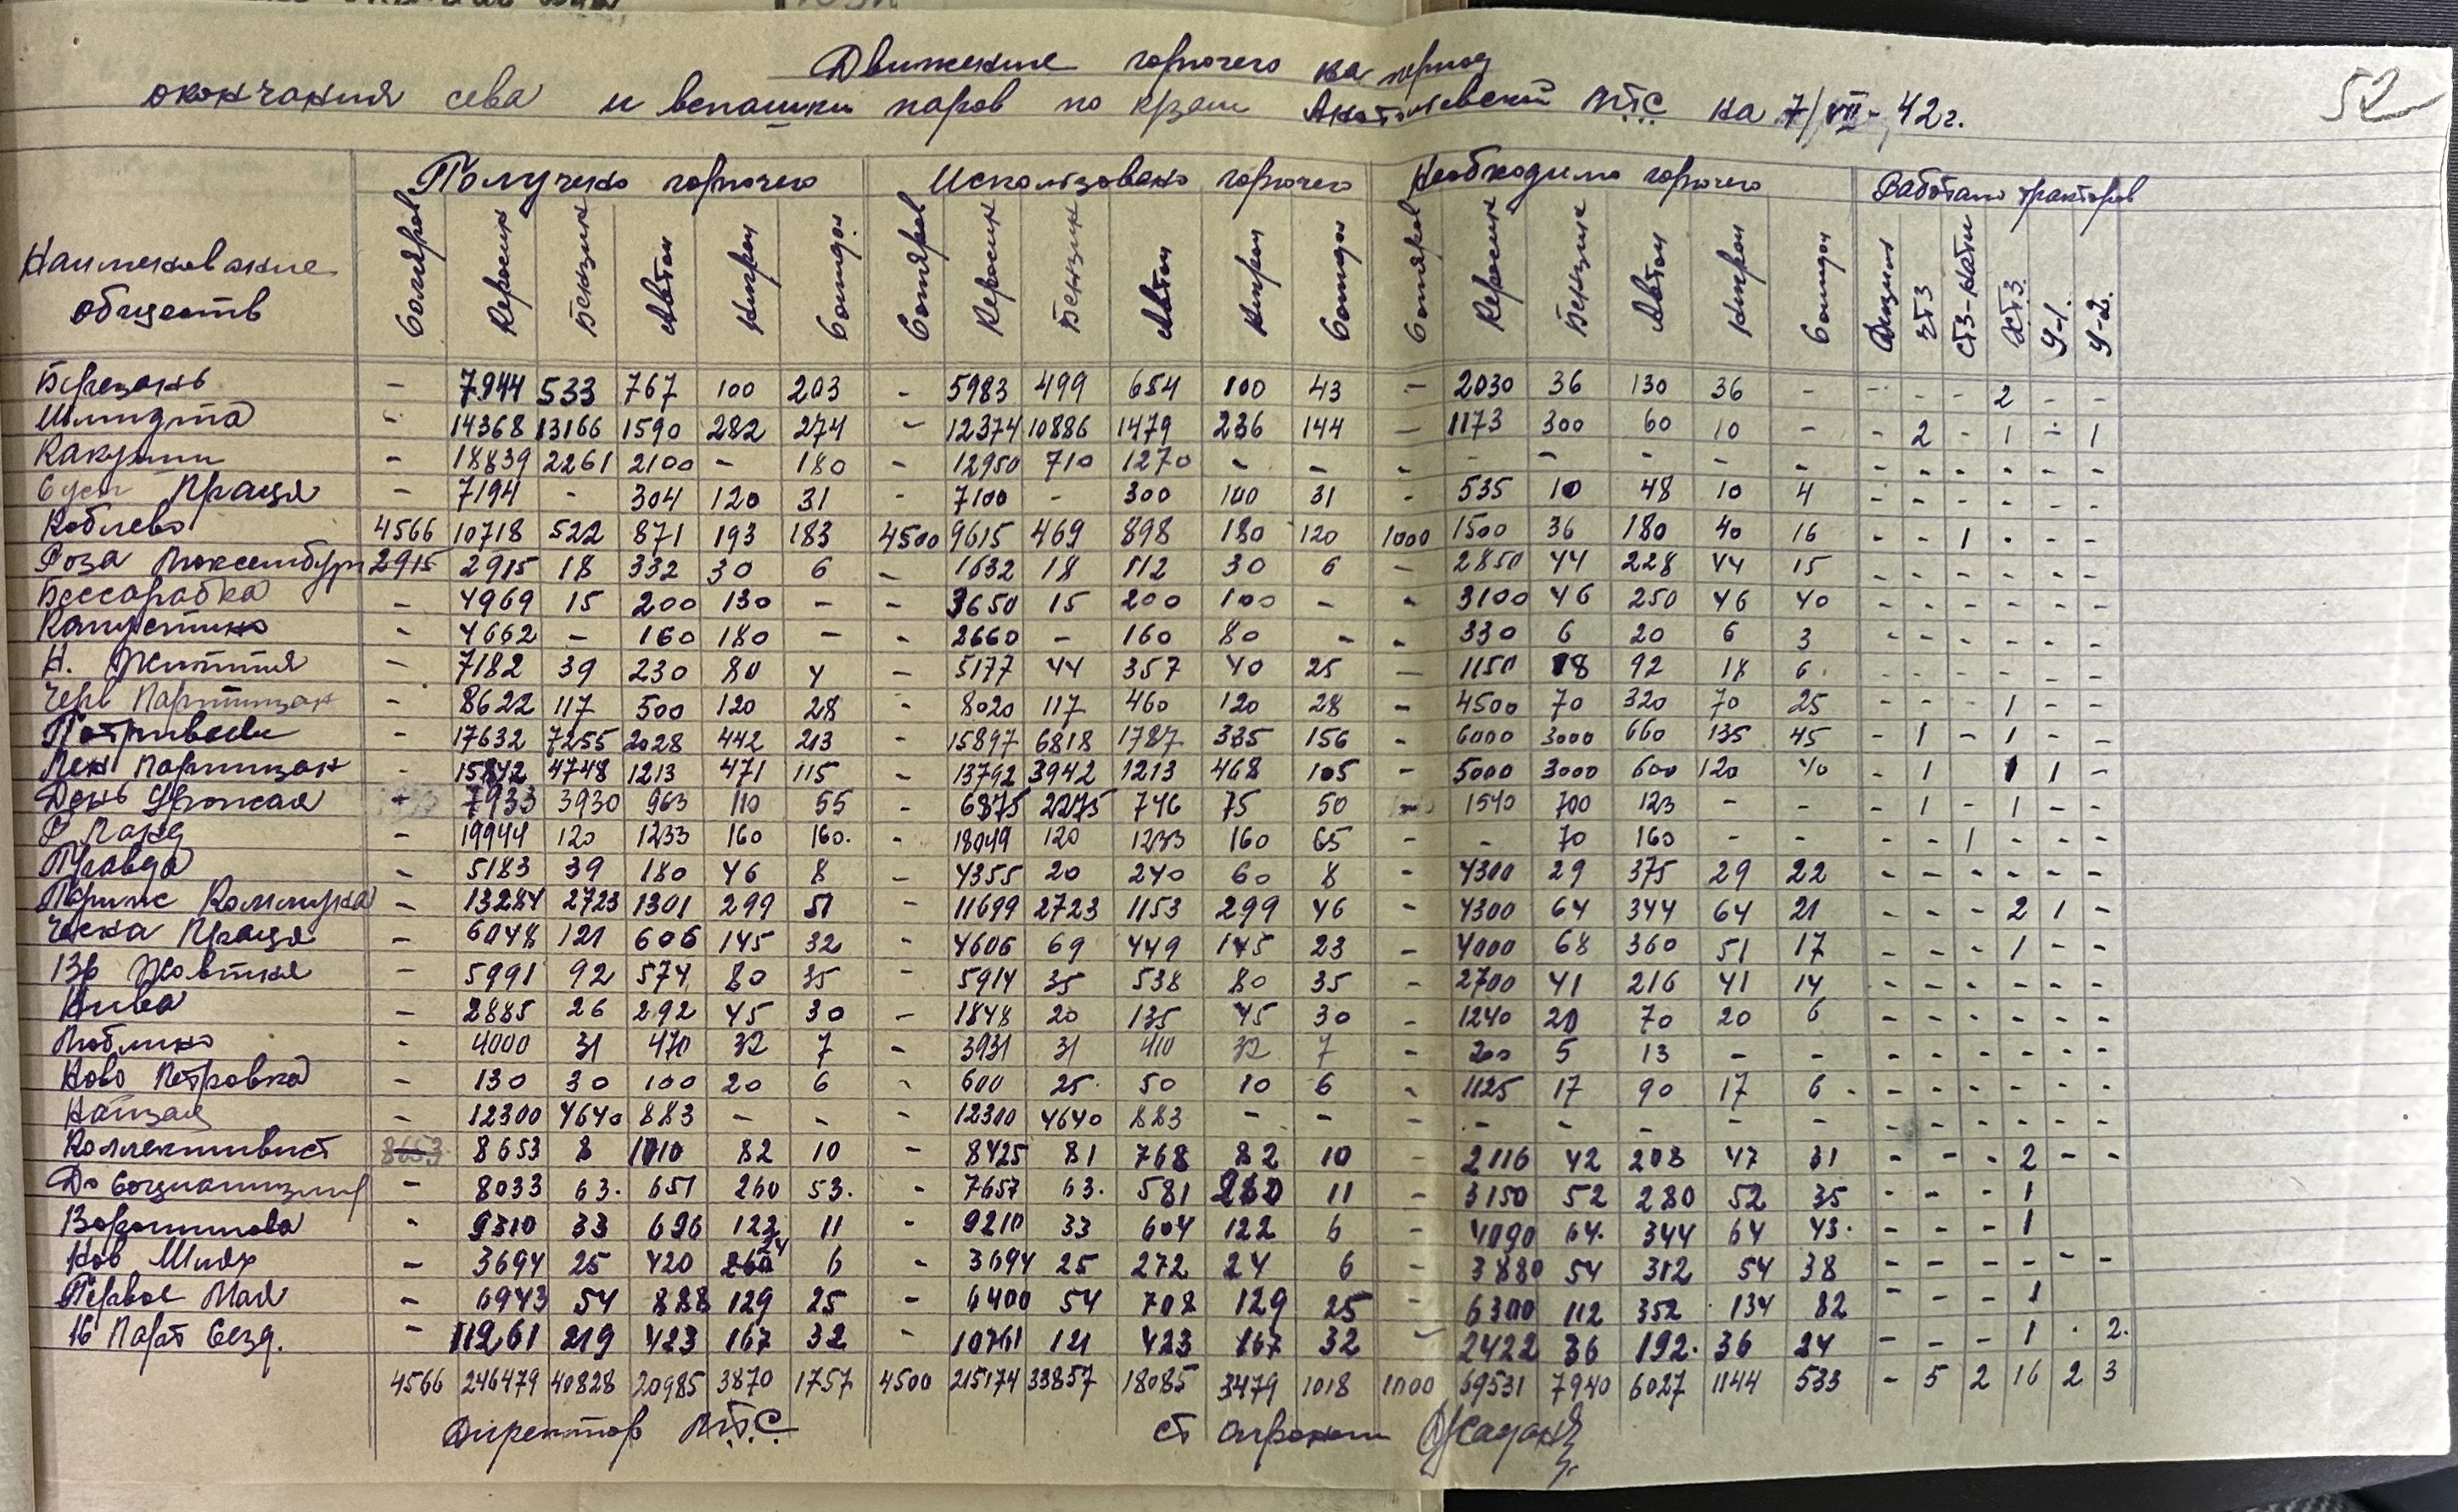 Движение горючего на период
окончания сева и вспашки паров по кр​зам Анатольевской МТС на 7/VII-42г.
52
Наименование обществ
Получено горючего Использовано горючего Необходимо горючего Работало тракторов
Соляров Керосин Бензин Автол Нигрол Солидол Соляров Керосин Бензин Автол Нигрол Солидол Соляров Керосин Бензин Автол Нигрол Солидол ЧТЗ СТЗ-Нати ХТЗ У-1. У-2.
Березань - 7944 533 767 100 203 - 5983 499 654 100 43 - 2030 36 130 36 - - - - 2 - -
Шмидта - 14368 13166 1590 282 274 - 12374 10886 1479 236 144 - 1173 300 60 10 - - 2 - 1 - 1
- 18839 2261 2100 - 180 - 12950 710 1270 - - - - - - - - - - - - - -
Праця - 7194 - 304 120 31 - 7100 - 300 100 31 - 535 10 48 10 4 - - - - - -
Коблево 4566 10718 522 871 193 183 4500 9615 469 898 180 120 1000 1500 36 180 40 16 - - 1 - - -
Роза Люксембург 2915 2915 18 332 30 6 - 1632 18 112 30 6 - 2850 44 228 44 15 - - - - - -
Бессарабка - 4969 15 200 130 - - 3650 15 200 100 - - 3100 46 250 46 40 - - - - - -
Капустино - 4662 - 160 180 - - 2660 - 160 80 - - 330 6 20 6 3 - - - - - -
Н. Життя - 7182 39 230 80 4 - 5177 44 357 40 25 - 1150 18 92 18 6 - - - - - -
Черв Партизан - 8622 117 500 120 28 - 8020 117 460 120 28 - 4500 70 320 70 25 - - - 1 - -
- 17632 7255 2028 442 213 - 15897 6818 1787 335 156 - 6000 3000 660 135 45 - 1 - 1 - -
Лен Партизан - 15842 4748 1213 471 115 - 13792 3942 1213 468 105 - 5000 3000 600 120 40 - 1 1 1 -
День Урожая - 7933 3930 963 110 55 - 6875 2275 746 75 50 1540 700 123 - - - 1 - 1 - -
- 19944 120 1233 160 160. - 18049 120 1233 160 65 - - 70 160 - - - - 1 - - -
Правда - 5183 39 180 46 8 - 4355 20 240 60 8 - 4300 29 375 29 22 - - - - - -
Париж Коммуна - 13284 2723 1301 299 51 - 11699 2723 1153 299 46 - 4300 64 344 64 21 - - - 2 1 -
Праця - 6048 121 606 145 32 - 4606 69 449 145 23 - 4000 68 360 51 17 - - - 1 - -
13р Жовтня - 5991 92 574 80 35 - 5914 35 538 80 35 - 2700 41 216 41 14 - - - - - -
Нива - 2885 26 292 45 30 - 1848 20 135 45 30 - 1240 20 70 20 6 - - - - - -
Люблино - 4000 31 470 32 7 - 3931 31 410 32 7 - 200 5 13 - - - - - - - -
Ново Петровка - 130 30 100 20 6 - 600 25 50 10 6 - 1125 17 90 17 6 - - - - - -
- 12300 4640 883 - - - 12300 4640 883 - - - - - - - - - - - - - -
Коллективист 8653 8653 8 1010 82 10 - 8425 81 768 82 10 - 2116 42 208 47 31 - - - 2 - -
До Социализму - 8033 63. 651 260 53. - 7657 63. 581 260 11 - 3150 52 280 52 35 - - - 1
Ворошилова - 9310 33 696 122 11 - 9210 33 604 122 6 - 4090 64. 344 64 43. - - - 1
Нов Шлях - 3694 25 420 260 24 6 - 3694 25 272 24 6 - 3880 54 312 54 38 - - - - - -
Первое Мая - 6943 54 888 129 25 - 6400 54 708 129 25 - 6300 112 352 134 82 - - - 1
16 Парт Сезд. - 11261 219 423 167 32 - 10761 121 423 167 32 - 2422 36 192. 36 24 - - - 1 . 2.
4566 246479 40828 20985 3870 1757 4500 215174 33857 18085 3479 1018 1000 69531 7940 6027 1144 533 - 5 2 16 2 3
Директор М.Т.С. ст Агроном